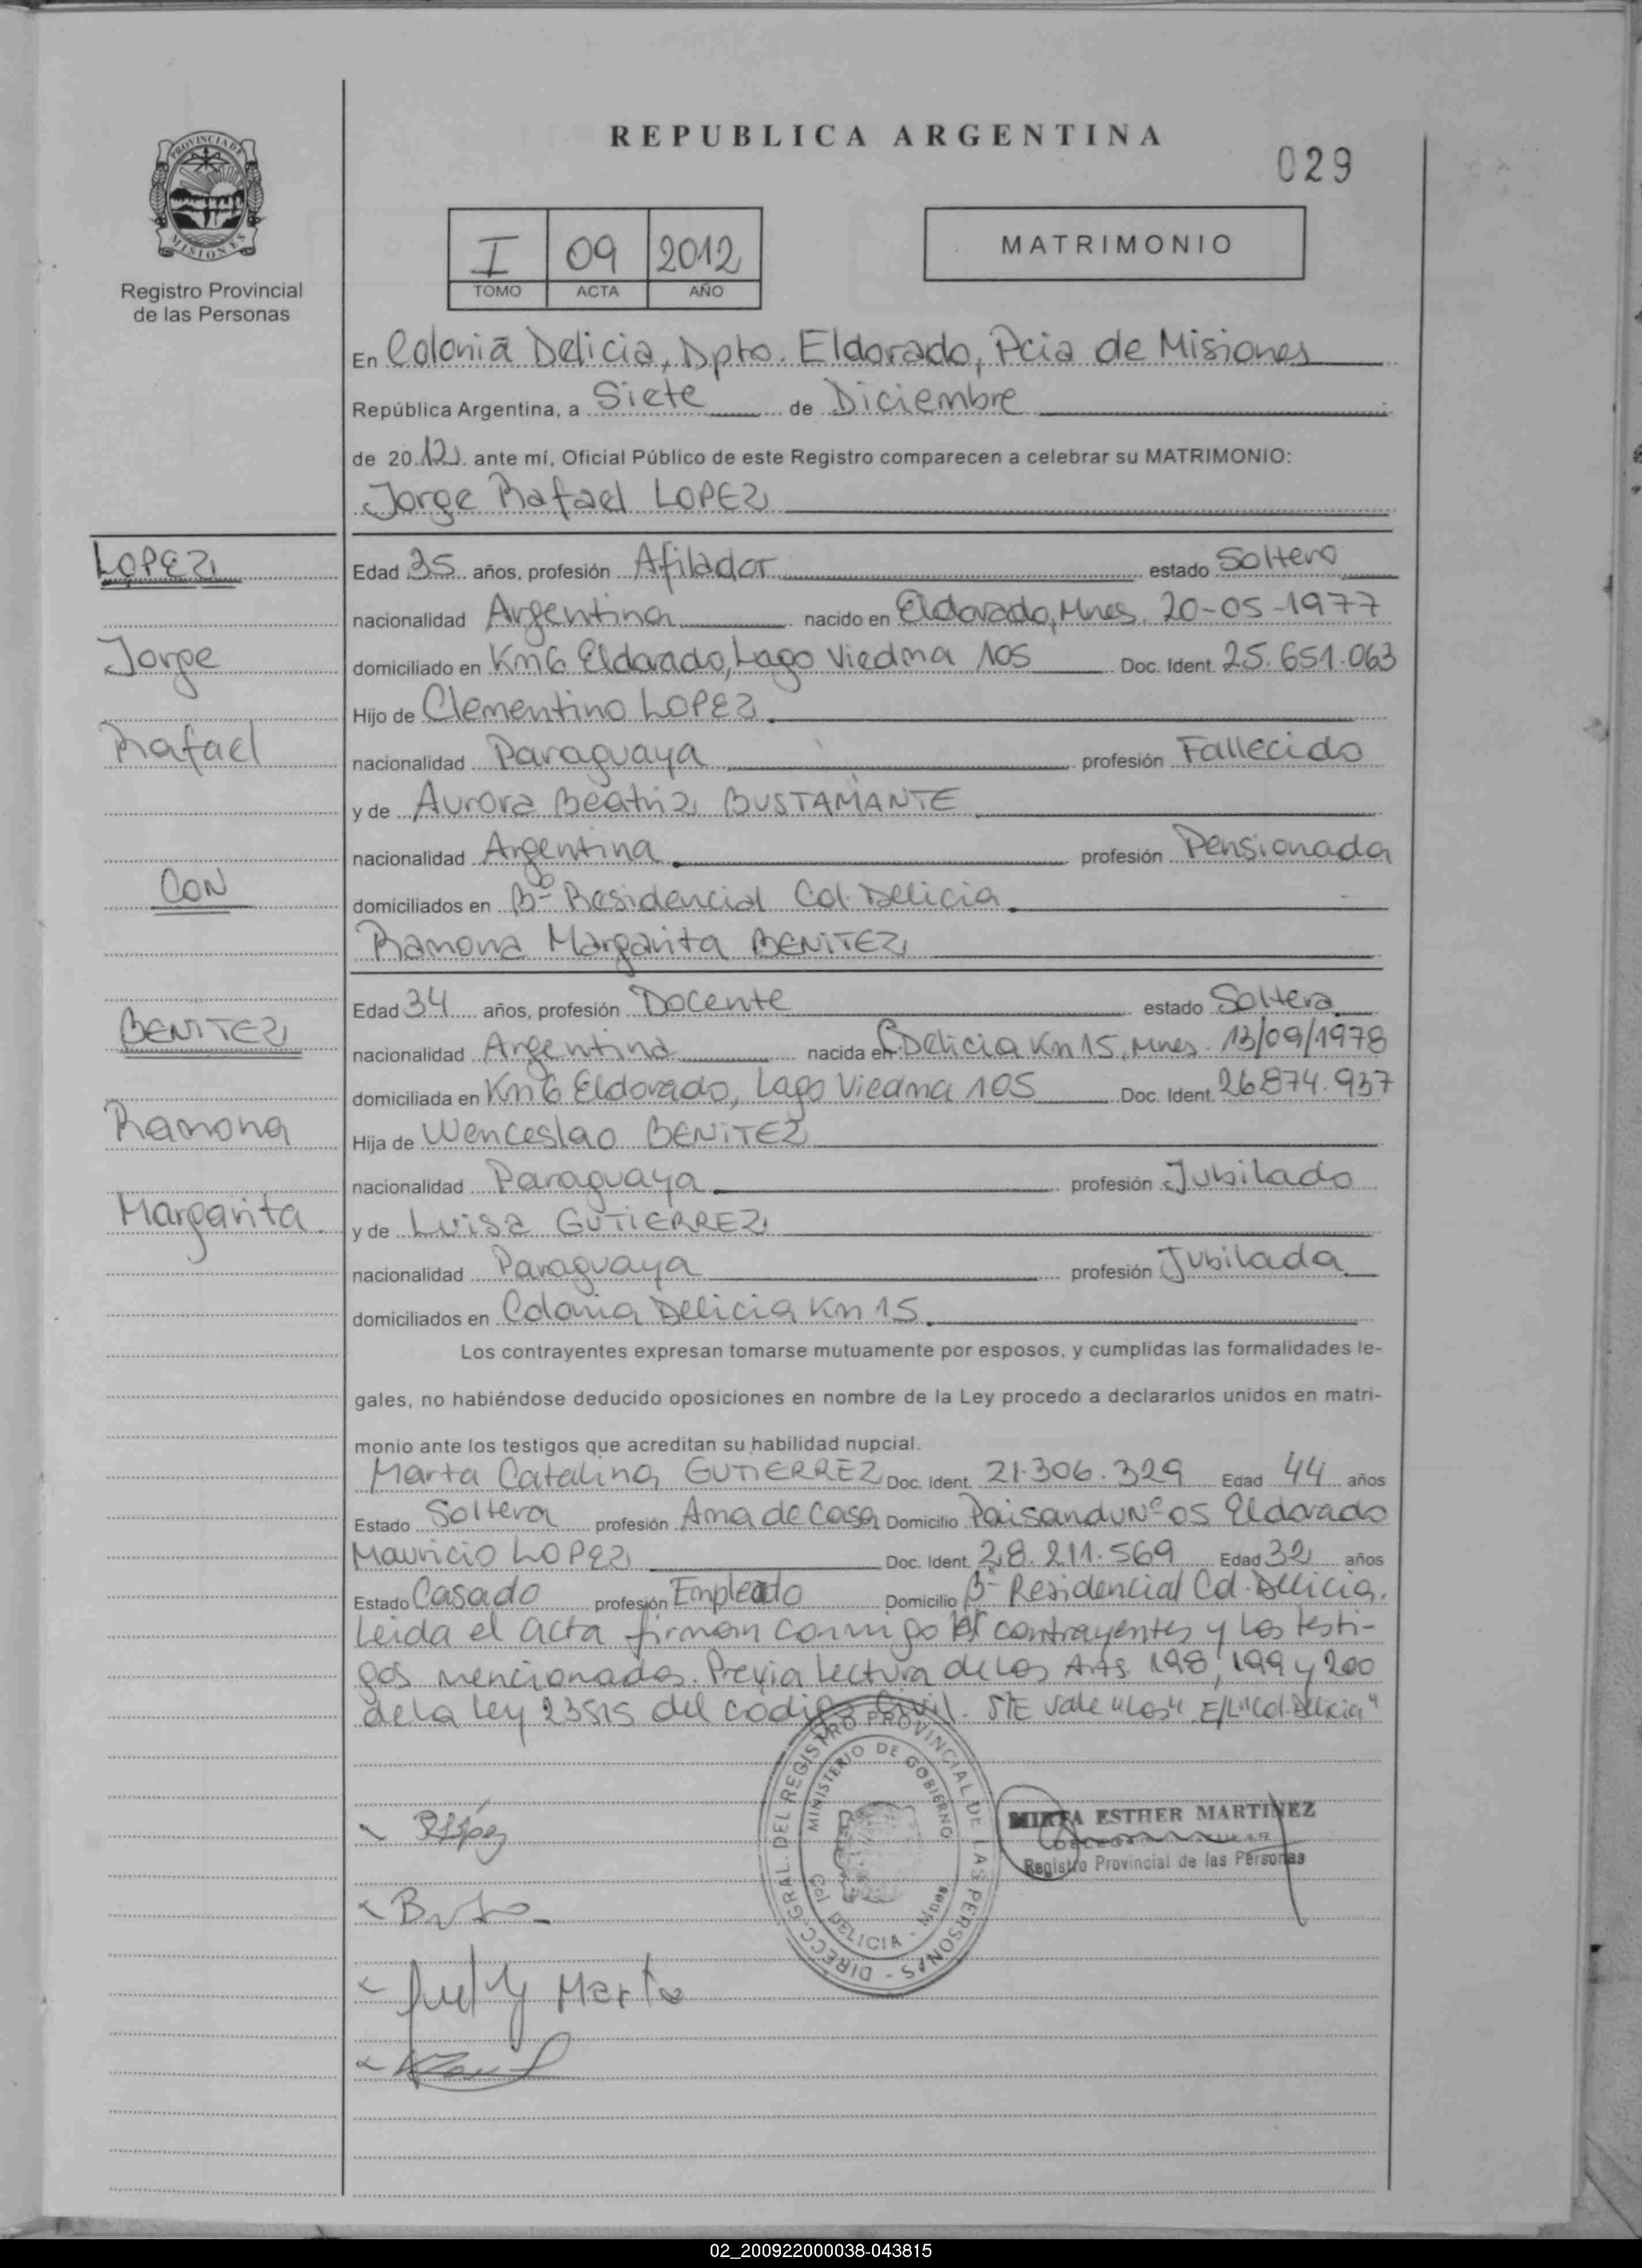 REPUBLICA ARGENTINA
029
PROVINCIA DE MISIONES
Registro Provincial
de las Personas
I 09 2012
TOMO ACTA AÑO
MATRIMONIO
En Colonia Delicia, Dpto. Eldorado, Pcia de Misiones
República Argentina, a Siete de Diciembre
de 2012 ante mí, Oficial Público de este Registro comparecen a celebrar su MATRIMONIO:
Jorge Rafael LOPEZ
LOPEZ
Jorge
Rafael
CON
BENITEZ
Ramona
Margarita
Edad 35 años, profesión Afilador estado Soltero
nacionalidad Argentina nacido en Eldorado, Mnes. 20-05-1977
domiciliado en Km 6 Eldorado, Lago Viedma 105 Doc. Ident. 25.651.063
Hijo de Clementino LOPEZ
nacionalidad Paraguaya profesión Fallecido
y de Aurora Beatriz BUSTAMANTE
nacionalidad Argentina profesión Pensionada
domiciliados en Bº Residencial Col. Delicia
Ramona Margarita BENITEZ
Edad 34 años, profesión Docente estado Soltera
nacionalidad Argentina nacida en C. Delicia Km 15, Mnes. 13/09/1978
domiciliada en Km 6 Eldorado, Lago Viedma 105 Doc. Ident. 26.874.937
Hija de Wenceslao BENITEZ
nacionalidad Paraguaya profesión Jubilado
y de Luisa GUTIERREZ
nacionalidad Paraguaya profesión Jubilada
domiciliados en Colonia Delicia Km 15
Los contrayentes expresan tomarse mutuamente por esposos, y cumplidas las formalidades le-
gales, no habiéndose deducido oposiciones en nombre de la Ley procedo a declararlos unidos en matri-
monio ante los testigos que acreditan su habilidad nupcial.
Marta Catalina GUTIERREZ Doc. Ident. 21.306.329 Edad 44 años
Estado Soltera profesión Ama de Casa Domicilio Paisandu Nº 05 Eldorado
Mauricio LOPEZ Doc. Ident. 28.211.569 Edad 32 años
Estado Casado profesión Empleado Domicilio Bº Residencial Col. Delicia.
Leida el acta firman conmigo los contrayentes y los testi-
gos mencionados. Previa lectura de los Arts. 198, 199 y 200
de la Ley 23515 del codigo Civil. S/E vale "los" E/L "Col. Delicia"
DIRECC. GRAL. DEL REGISTRO PROVINCIAL DE LAS PERSONAS
MINISTERIO DE GOBIERNO
Col DELICIA - Mnes.
MIRTA ESTHER MARTINEZ
Registro Provincial de las Personas
Marta
02_200922000038-043815